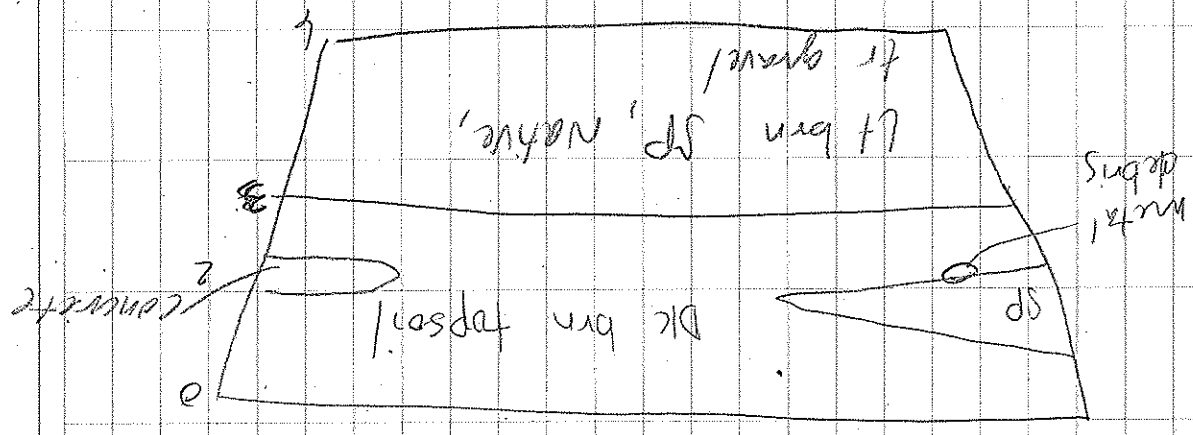 0
SP
Dk brn topsoil
concrete
2
metal
debris
3
Lt brn SP, Native,
tr gravel
4